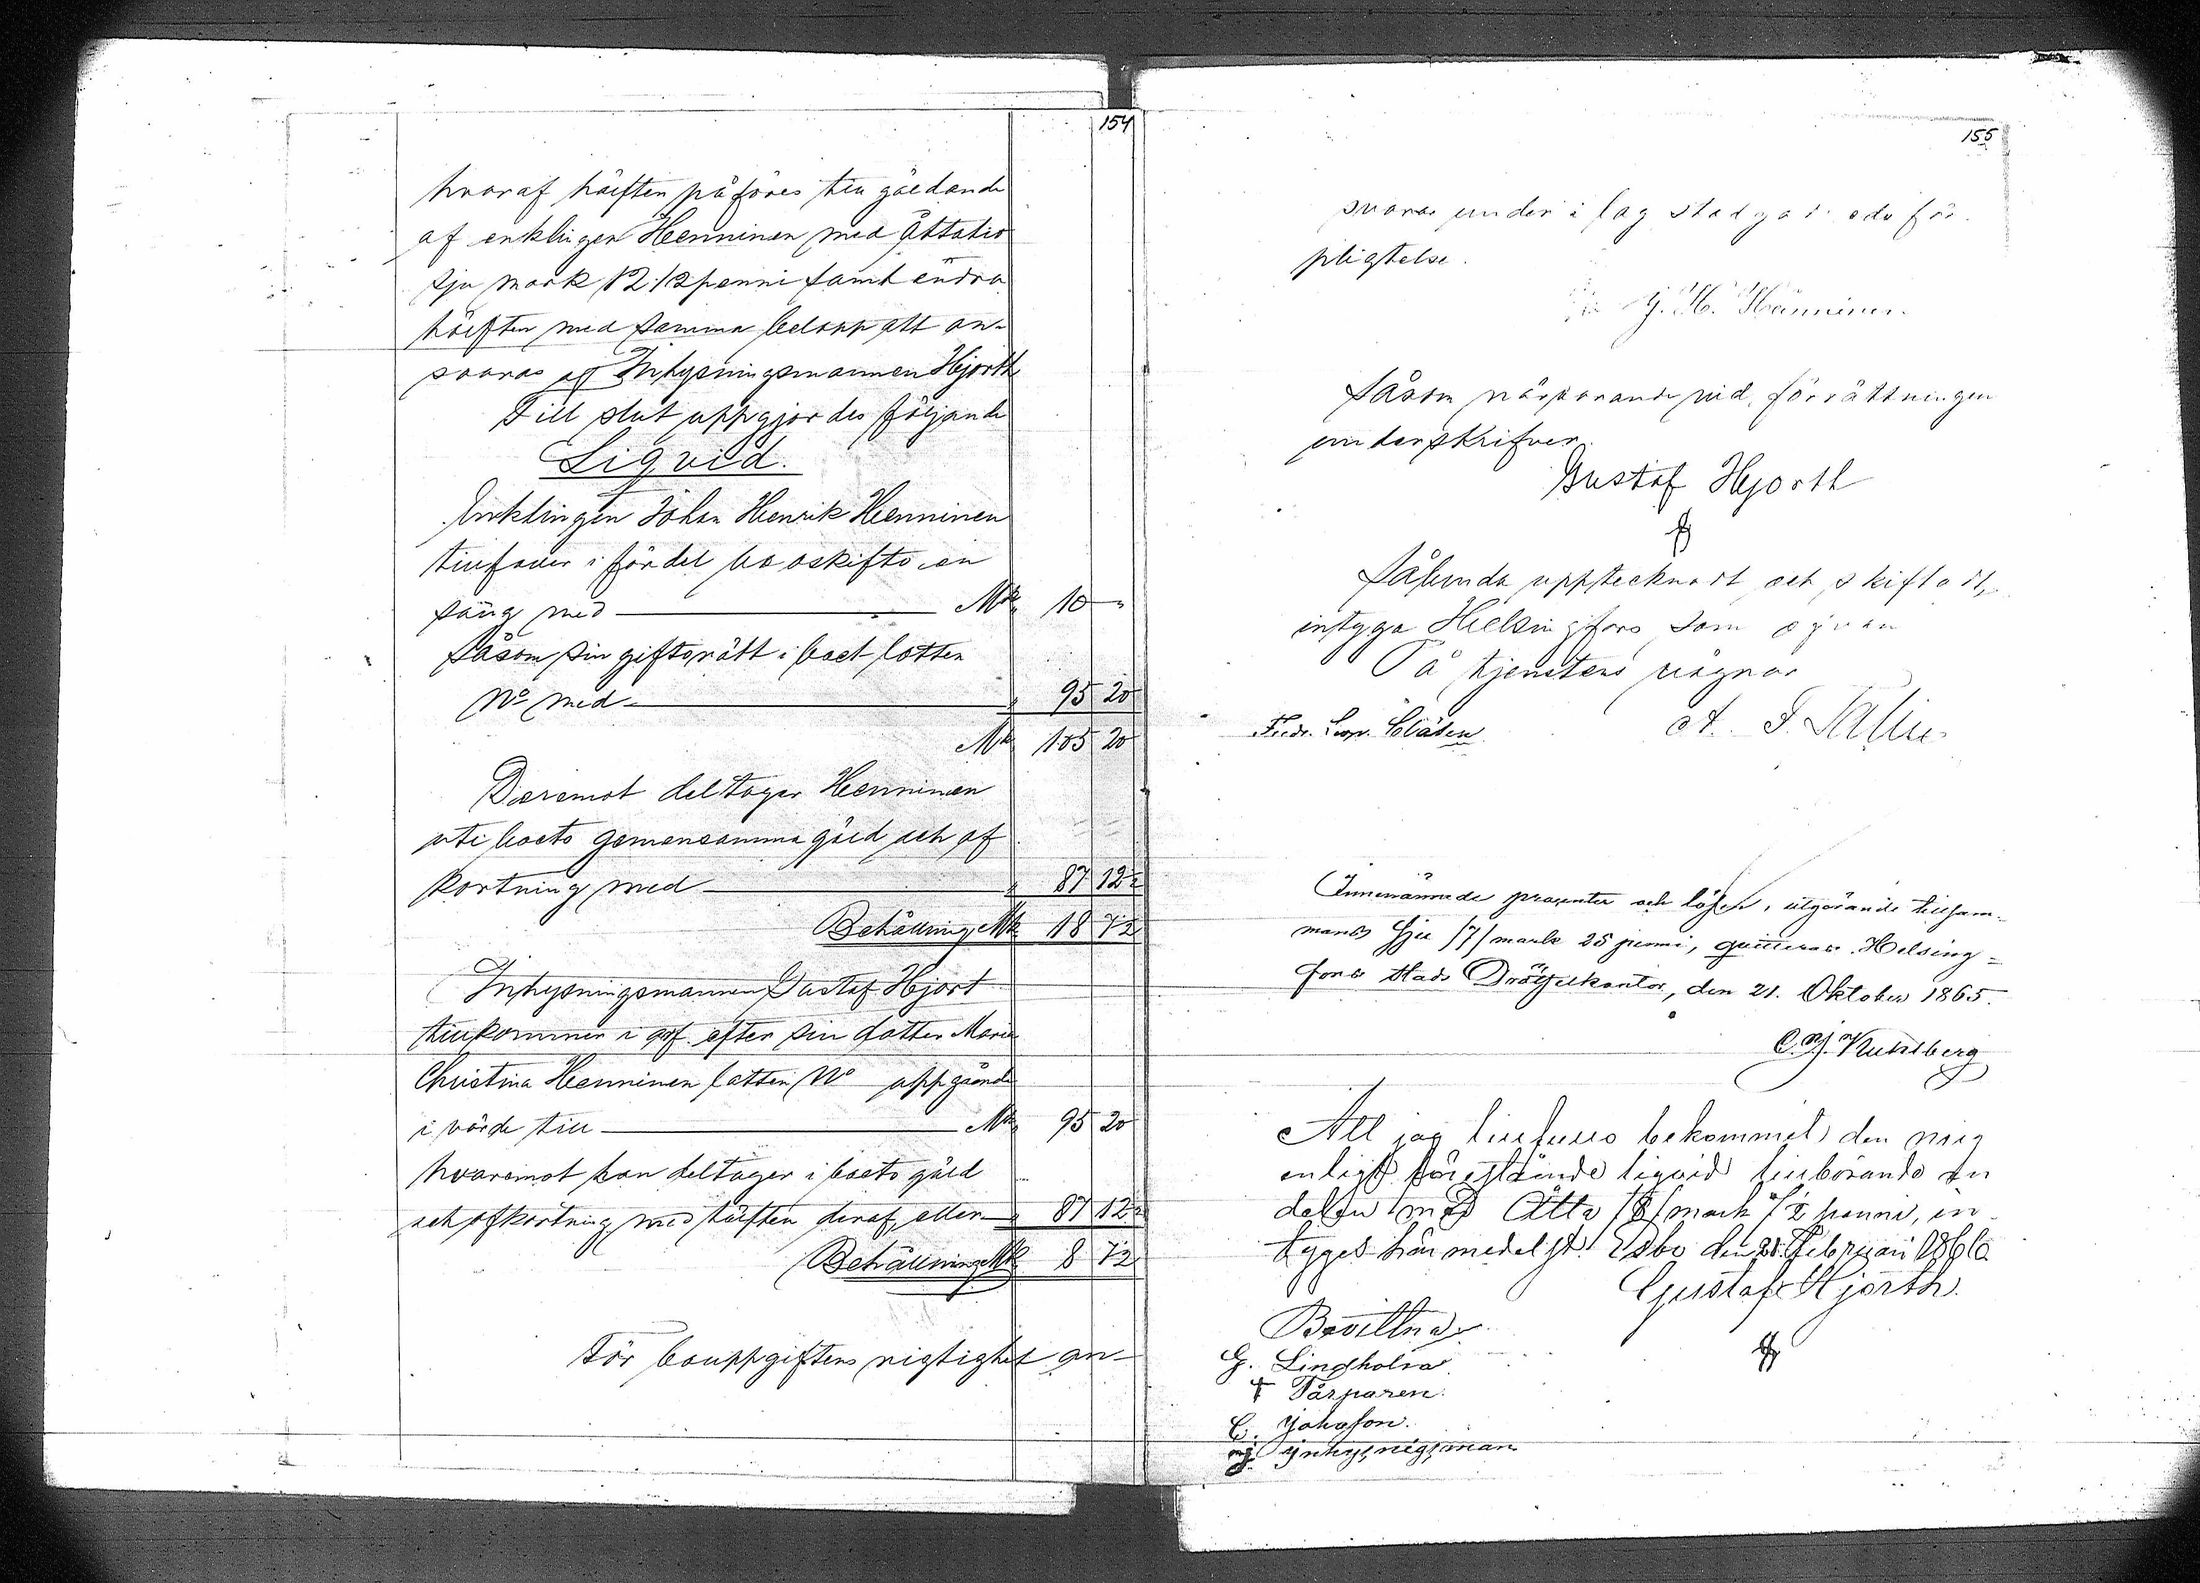 154
hvaraf hälften påföres till gäldande
af enklingen Henninen med Åttatio
sju mark 12 1/2 penni samt andra
hälften med samma belopp att an-
svaras af Inhysningsmannen Hjorth
Till slut uppgjordes följande
Liqvid.
Enklingen Johan Henrik Henninen
tillfaller i fördel bo oskifto en
säng med Mk 10 "
Såsom sin giftorätt i boet lotten
No med " 95 20
Mk 105 20
Däremot deltager Henninen
uti boets gemensamma gäld och af
kortning med " 87 12 1/2
Behållning Mk 18 7 1/2
Inhysningsmannen Gustaf Hjort
tillkommer i arf efter sin dotter Maria
Christina Henninen lotten No uppgående
i värde till Mk 95 20
hvaremot han deltager i boets gäld
och afkortning med hälften deraf eller " 87 12 1/2
Behållning Mk 8 7 1/2
För bouppgiftens rigtighet an-
155
svaras under i lag stadgad edsför-
pligtelse.
J. H. Hänninen.
Såsom närvarande vid förrättningen
underskrifver.
Gustaf Hjorth
Sålunda upptecknadt och skiftadt,
intyga Helsingfors som ofvan
På tjenstens vägnar
Fredr. Leop. Clasén
Innenämnde procenter och lösen, utgörande tillsam-
mans Sju /7/ mark 25 penni, quitteras. Helsing-
fors stads Drätselkontor, den 21. Oktober 1865.
Att jag tillfullo bekommit den mig
enligt förestående liqvid tillhörande an
delen med Åtta /8/ mark 7 1/2 penni, in
tygas härmedelst. Esbo den 21. Februari 1866
Gustaf Hjorth.
Bevittna
G. Lindholm
Torparen.
C. Johasson.
Inhysnigsman